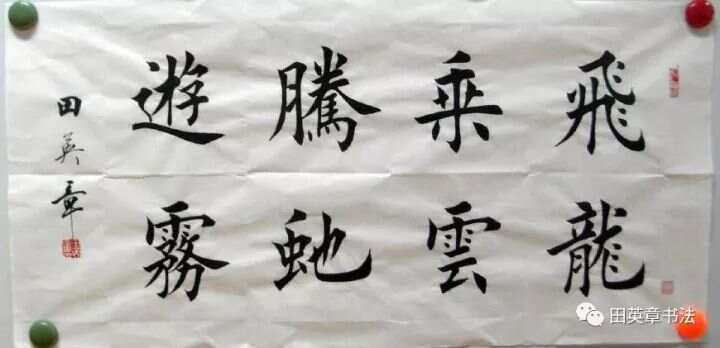 飛龍
乗雲
騰虵
遊霧
田英章
田英章书法